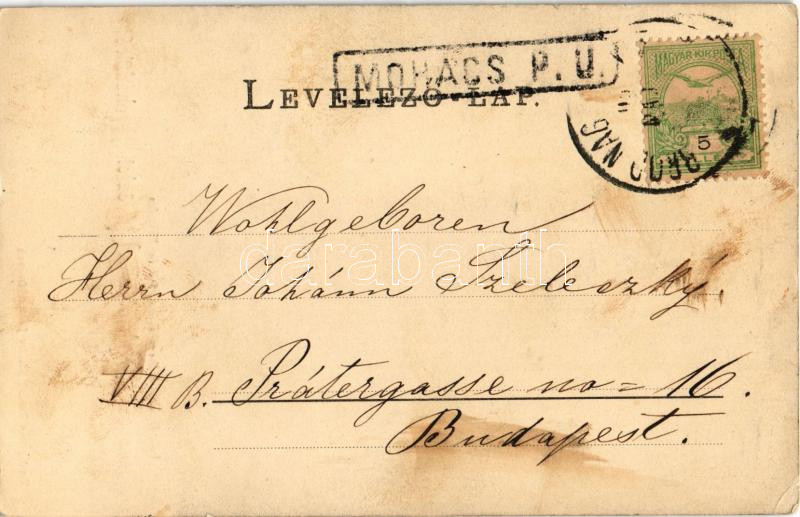 MOHÁCS P. U.
LEVELEZŐ-LAP.
MAGYAR KIR. POSTA
5
NAG
Wohlgeboren
darabanth
Herrn Johánn Szeleczky.
VIII B. Prátergasse no = 16.
Budapest.